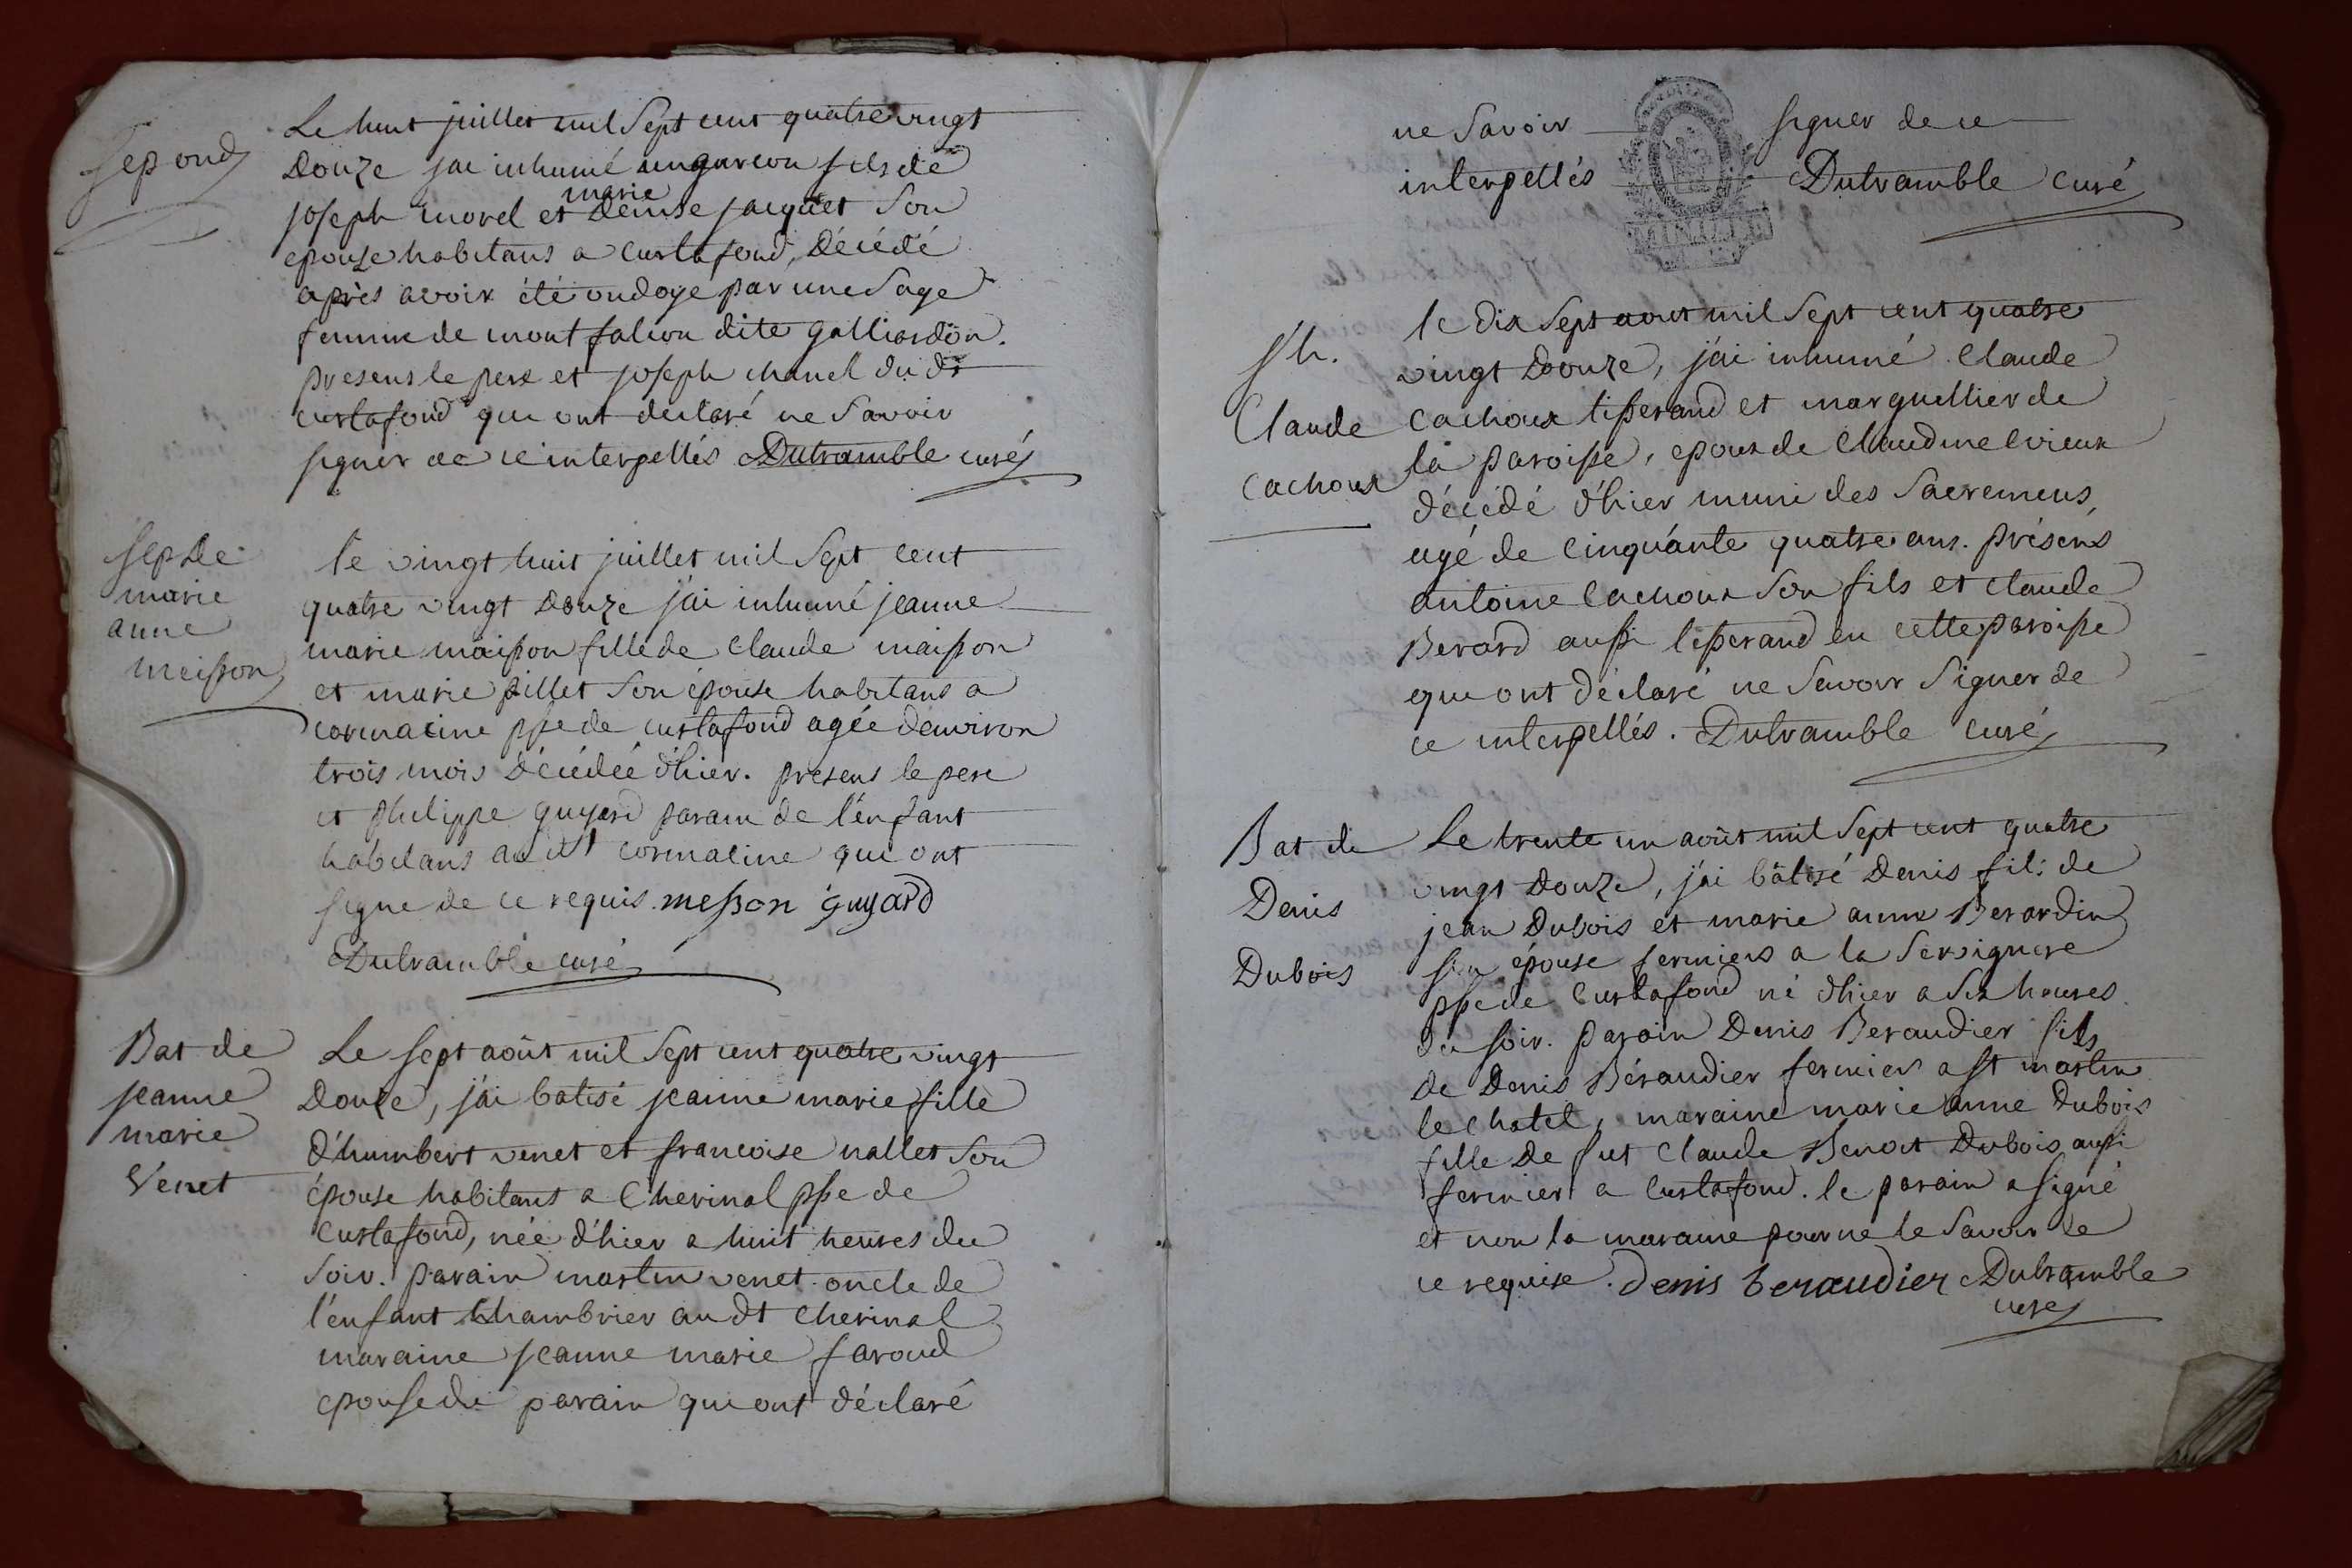 Sep ond
Le huit juillet mil Sept cent quatre vingt
Douze j'ai inhumé un garcon fils de
joseph morel et marie Denise jacquet Son
epouse habitans a Curtafond, Décédé
après avoir été ondoyé par une Sage
femme de mont falcon dite galliardon.
presens le pere et joseph chanel du dt
curtafond qui ont declaré ne Savoir
signer de ce interpellés Dutramble curé
Sep De
marie
anne
meisson
le vingt huit juillet mil Sept cent
quatre vingt Douze j'ai inhumé jeanne
marie maisson fille de Claude maisson
et marie pillet Son épouse habitans a
cormatine psse de curtafond agée d'environ
trois mois Décédée d'hier. presens le pere
et philippe guyard parain de l'enfant
habitans au dt cormatine qui ont
signe de ce requis. messon guyard
Dutramble curé
Bat de
jeanne
marie
Venet
Le sept août mil Sept cent quatre vingt
Douze, j'ai batisé jeanne marie fille
d'humbert venet et francoise nallet Son
épouse habitans a Cherinal psse de
Curtafond, née d'hier a huit heures du
Soir. parain martin venet oncle de
l'enfant chambrier au dt cherinal
maraine jeanne marie faroud
epouse du parain qui ont déclaré
ne Savoir signer de ce
interpellés Dutramble curé
Sh.
Claude
Cachoux
le dix Sept aout mil Sept cent quatre
vingt Douze, j'ai inhumé Claude
Cachoux tisserand et marguellier de
la paroisse, epoux de Claudine vieux
décédé d'hier muni des Sacremens,
agé de cinquante quatre ans. présens
antoine Cachoux Son fils et Claude
Berard aussi tisserand en cette paroisse
qui ont déclaré ne Savoir Signer de
ce interpellés. Dutramble curé
Bat de
Denis
Dubois
Le trente un août mil Sept cent quatre
vingt Douze, j'ai bâtisé Denis fils de
jean Dubois et marie anne Berardin
son épouse fermiers a la Servignere
psse de Curtafond né d'hier a Six heures
du soir. parain Denis Beraudier fils
de Denis Béraudier fermier a st martin
le chatel, maraine marie anne Dubois
fille de fut Claude Benoit Dubois aussi
fermier a Curtafond. le parain a signé
et non la maraine pour ne le Savoir de
ce requise. Denis beraudier Dutramble
curé